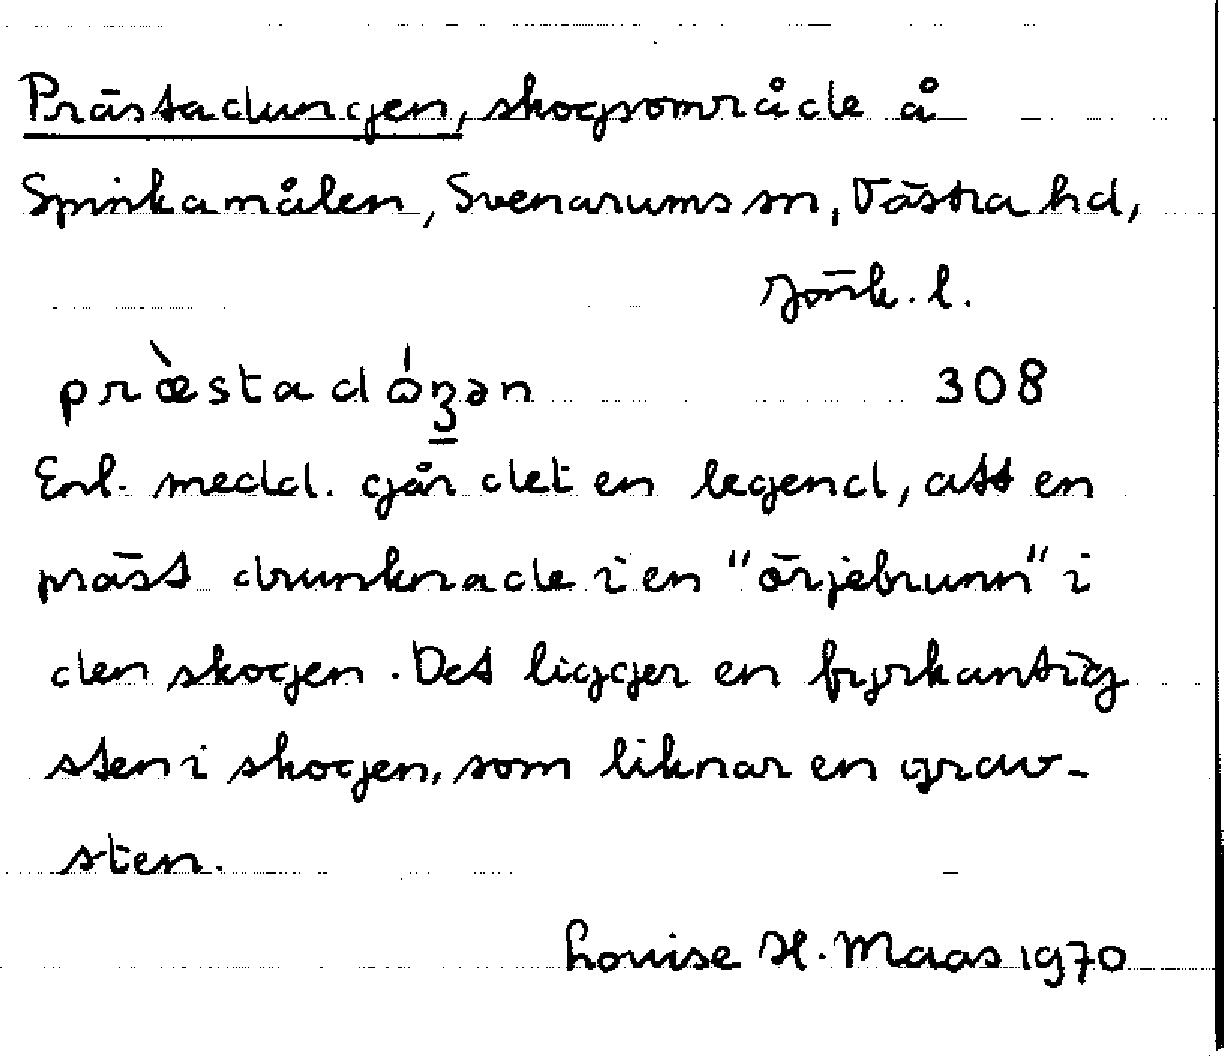 Prästadungen, skogsområde å
Spinkamålen, Svenarums sn, Västra hd,
Jönk. l.
prὲstadώŋən 308
Enl. medd. går det en legend, att en
präst drunknade i en "örjebrunn" i
den skogen. Det ligger en fyrkantig
sten i skogen, som liknar en grav-
sten.
Louise H. Maas 1970